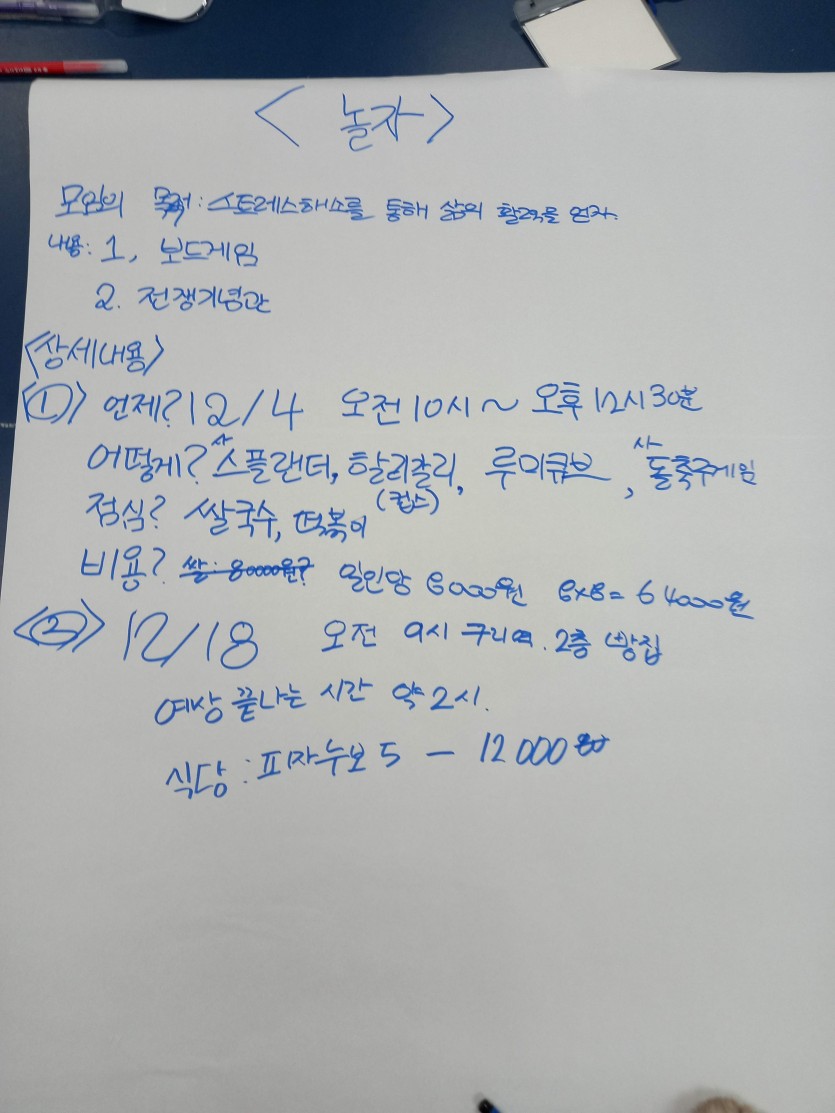 < 놀자 >
모임의 목적: 스트레스해소를 통해 삶의 활력을 얻자.
내용: 1, 보드게임
2. 전쟁기념관
<상세내용>
<①> 언제? 12/4 오전 10시 ~ 오후 12시 30분
사 사
어떻게? 스플랜더, 할리갈리, 루미큐브, 돌축구게임
(컵스)
점심? 쌀국수, 떡볶이
비용? 쌀: 8000원? 일인당 8000원 8x8= 64000원
<②> 12/18 오전 9시 구리역. 2층 빵집
예상 끝나는 시간 약 2시.
식당: 피자누보 5 - 12000원